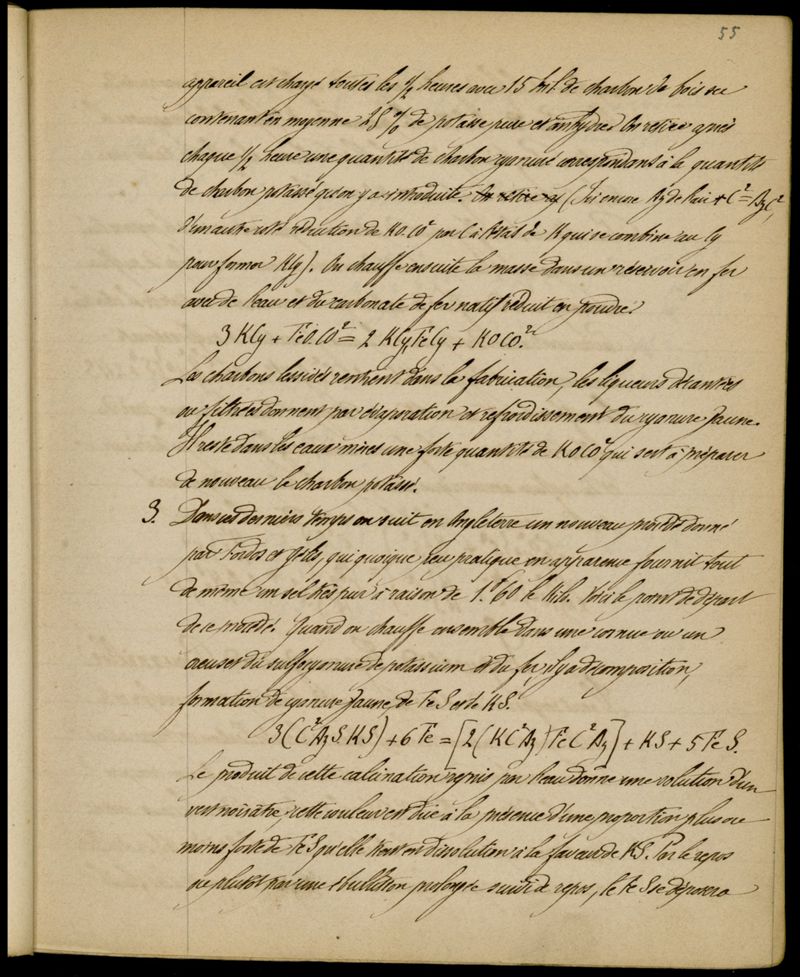 55
appareil est chargé toutes les 1/2 heures avec 15 kil. de charbon de bois sec
contenant en moyenne 25 % de potasse pure et anhydre. On retire après
chaque 1/2 heure une quantité de charbon cyanuré correspondant à la quantité
de charbon potassé qu'on y a introduite. On retire (Ici encore Az de l'air + C² = AzC²,
d'un autre côté réduction de KO.CO² par C à l'état de K qui se combine au Cy
pour former KCy). On chauffe ensuite la masse dans un réservoir en fer
avec de l'eau et du carbonate de fer natif réduit en poudre.
3 KCy + FeO.CO² = 2 KCy,FeCy + KOCO².
Les charbons lessivés rentrent dans la fabrication, les liqueurs décantées
ou filtrées donnent par évaporation et refroidissement du cyanure jaune.
Il reste dans les eaux mères une forte quantité de KOCO² qui sert à préparer
de nouveau le charbon potassé.
3. Dans ces derniers temps on suit en Angleterre un nouveau procédé donné
par Fordos et Gélis, qui quoique peu pratique en apparence fournit tout
de même un sel très pur à raison de 1.f60 le kil. Voici le point de départ
de ce procédé. Quand on chauffe ensemble dans une cornue ou un
creuset du sulfocyanure de potassium et du fer, il y a décomposition,
formation de cyanure jaune, de FeS et de KS.
3(C²AzS.KS) + 6Fe = [2(KC²Az)FeC²Az] + KS + 5FeS.
Le produit de cette calcination repris par l'eau donne une solution d'un
vert noirâtre, cette couleur est due à la présence d'une proportion plus ou
moins forte de FeS qu'elle tient en dissolution à la faveur de KS. Par le repos
ou plutôt par une ébullition prolongée suivi de repos, le FeS se déposera